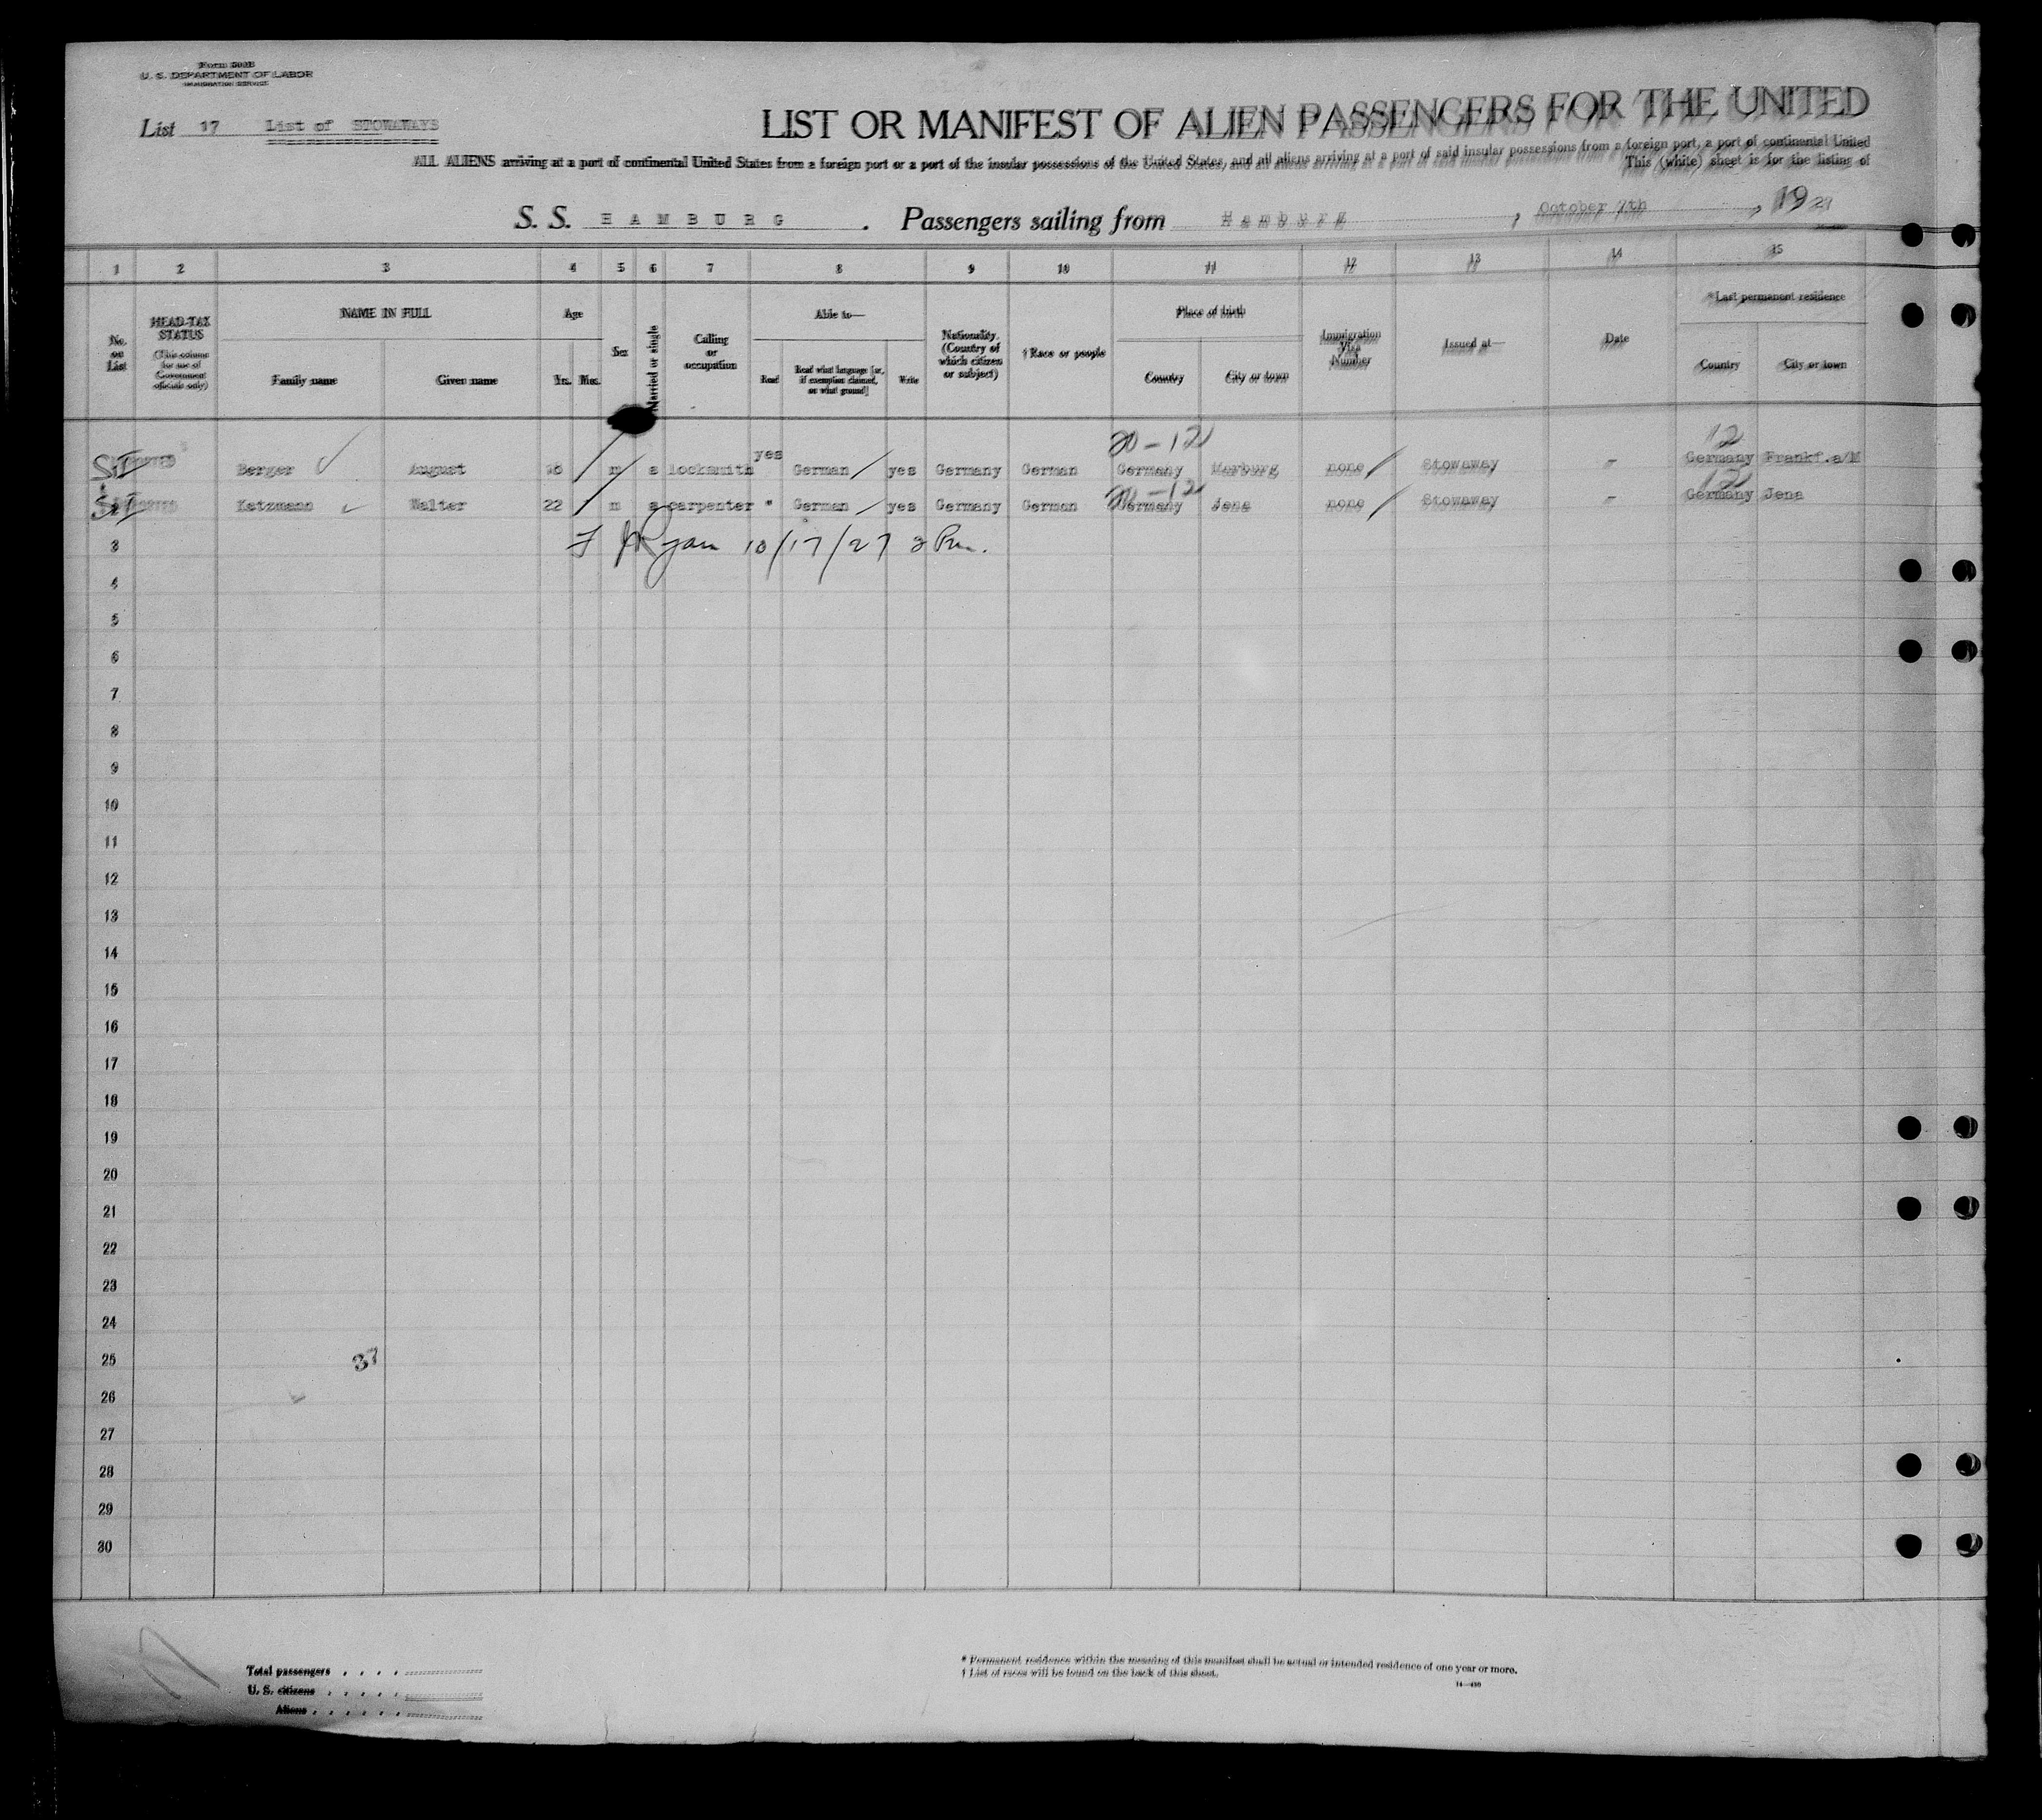 Form 500B
U. S. DEPARTMENT OF LABOR
IMMIGRATION SERVICE
List 17 List of STOWAWAYS
LIST OR MANIFEST OF ALIEN PASSENGERS FOR THE UNITED
ALL ALIENS arriving at a port of continental United States from a foreign port or a port of the insular possessions of the United States, and all aliens arriving at a port of said insular possessions from a foreign port, a port of continental United
This (white) sheet is for the listing of
S. S. HAMBURG . Passengers sailing from Hamburg , October 7th , 1927
1 2 3 4 5 6 7 8 9 10 11 12 13 14 15
No. on List
HEAD-TAX STATUS (This column for use of Government officials only)
NAME IN FULL
Family name Given name
Age
Yrs. Mos.
Sex
Married or single
Calling or occupation
Able to—
Read
Read what language [or, if exemption claimed, on what ground]
Write
Nationality. (Country of which citizen or subject)
† Race or people
Place of birth
Country City or town
Immigration Visa Number
Issued at—
Date
*Last permanent residence
Country City or town
20-12 12
Berger August m s locksmith yes German yes Germany German Germany Marburg none Stowaway - Germany Frankf.a/M
12
Walter 22 m s carpenter " German yes Germany German Germany Jena none Stowaway - Germany Jena
3 Ryan 10/17/27 2 Pm.
4
5
6
7
8
9
10
11
12
13
14
15
16
17
18
19
20
21
22
23
24
25 37
26
27
28
29
30
Total passengers
U. S. citizens
Aliens
* Permanent residence within the meaning of this manifest shall be actual or intended residence of one year or more.
† List of races will be found on the back of this sheet.
14—430